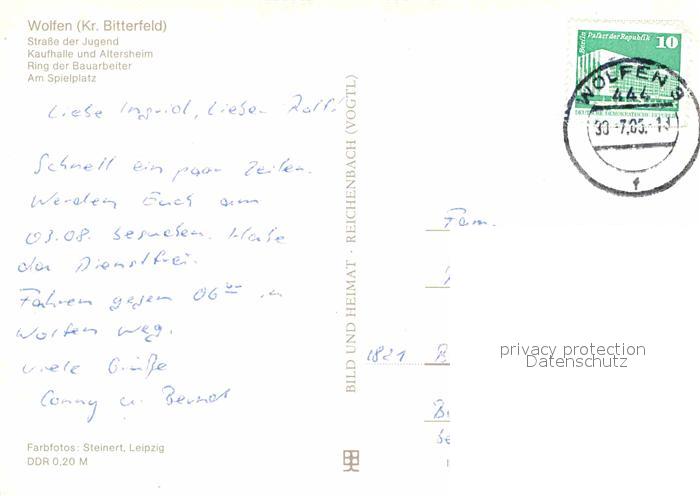 Wolfen (Kr. Bitterfeld)
Straße der Jugend
Kaufhalle und Altersheim
Ring der Bauarbeiter
Am Spielplatz
Liebe Ingrid, Lieber Rolf!
Schnell ein paar Zeilen.
Werden Euch am
03.08. besuchen. Habe
da Dienstfrei.
Fahren gegen 06 in
Wolfen weg.
viele Grüße
Conny u. Bernd
Farbfotos: Steinert, Leipzig
DDR 0,20 M
BILD UND HEIMAT · REICHENBACH (VOGTL)
Berlin Palast der Republik
10
DEUTSCHE DEMOKRATISCHE REPUBLIK
WOLFEN 3
444
30.-7.85.-13
f
Fam.
1821 B
privacy protection
Datenschutz